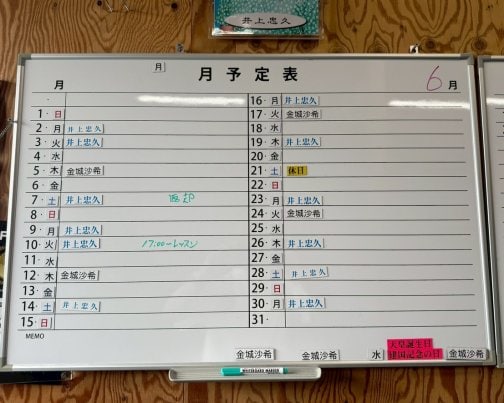 井上忠久
月
月予定表
月
6月
1・日
2・月 井上忠久
3・火 井上忠久
4・水
5・木 金城沙希
6・金
7・土 井上忠久
8・日
9・月 井上忠久
10・火 井上忠久 17:00〜レッスン
11・水
12・木 金城沙希
13・金
14・土 井上忠久
15・日
16・月 井上忠久
17・火 金城沙希
18・水
19・木 井上忠久
20・金
21・土 休日
22・日
23・月 井上忠久
24・火 金城沙希
25・水
26・木 井上忠久
27・金
28・土 井上忠久
29・日
30・月 井上忠久
31・
MEMO
金城沙希 金城沙希 水 天皇誕生日 建国記念の日 金城沙希
WHITEBOARD MARKER